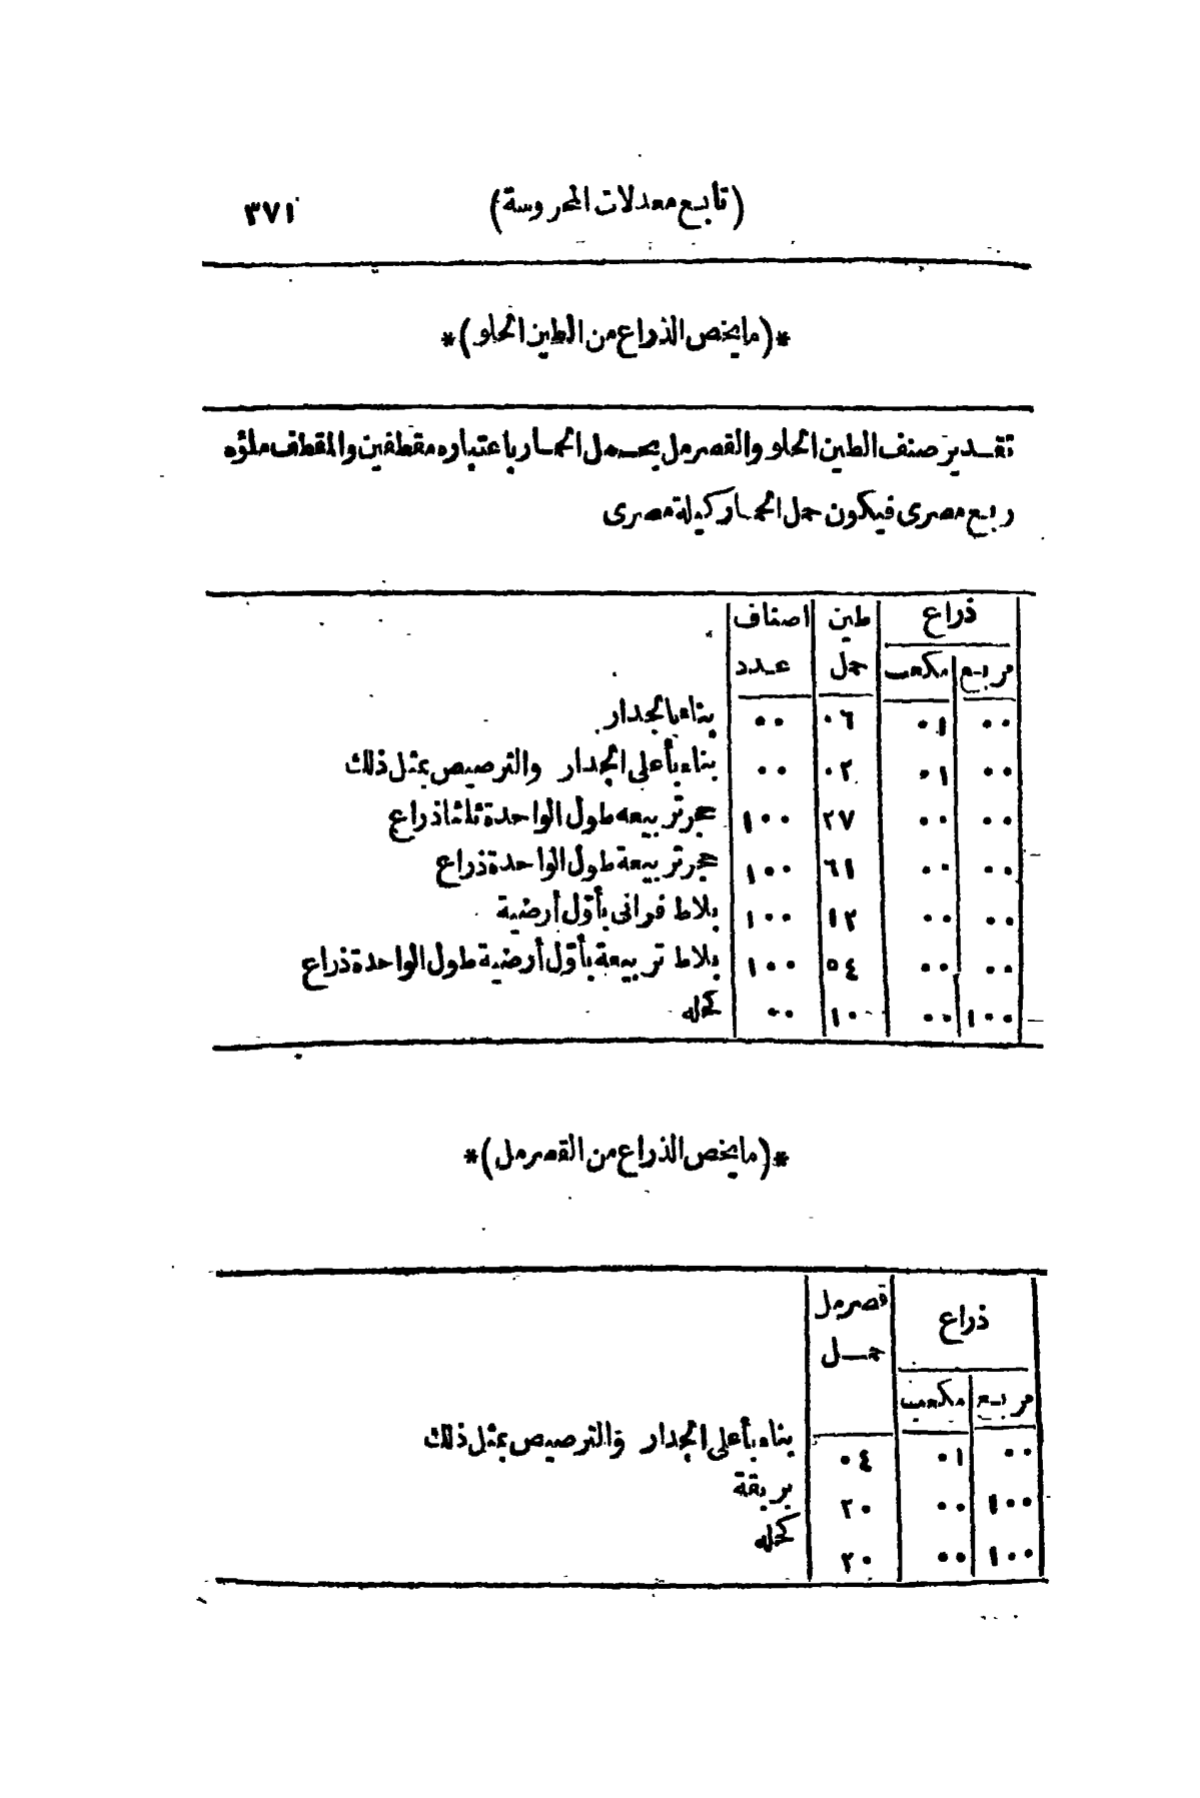 (تابع معدلات المحروسة) ٣٧١
*(مايخص الذراع من الطين الحلو)*
تقدير صنف الطين الحلو والقصرمل بحمل الحمار باعتباره مقطفين والمقطف ملؤه
ربع مصرى فيكون حمل الحمار كيلة مصرى
ذراع طين اصناف
مربع مكعب حمل عدد
٠٠ ٠١ ٠٦ ٠٠ بناء بالجدار
٠٠ ٠١ ٠٢ ٠٠ بناء بأعلى الجدار والترصيص بمثل ذلك
٠٠ ٠٠ ٢٧ ١٠٠ حجر تربيعه طول الواحدة ثلثا ذراع
٠٠ ٠٠ ٦١ ١٠٠ حجر تربيعة طول الواحدة ذراع
٠٠ ٠٠ ١٢ ١٠٠ بلاط فرانى بأول أرضية
٠٠ ٠٠ ٥٤ ١٠٠ بلاط تربيعة بأول أرضية طول الواحدة ذراع
١٠٠ ٠٠ ١٠ ٠٠ كحله
*(مايخص الذراع من القصرمل)*
ذراع قصرمل
حمل
مربع مكعب
٠٠ ٠١ ٠٤ بناء بأعلى الجدار والترصيص بمثل ذلك
١٠٠ ٠٠ ٢٠ بريقة
١٠٠ ٠٠ ٢٠ كحله